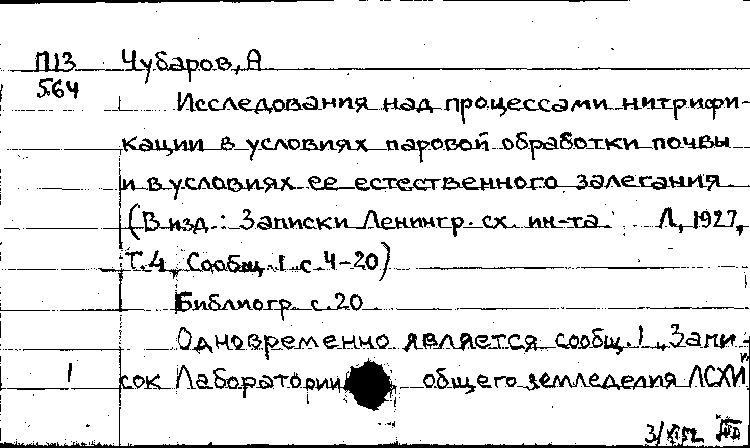 П13 Чубаров, А
564
Исследования над процессами нитрифи-
кации в условиях паровой обработки почвы
и в условиях ее естественного залегания
(В изд.: Записки Ленингр. сх. ин-та. Л, 1927,
Т.4, Сообщ. 1 с. 4-20)
Библиогр. с. 20
Одновременно является сообщ. 1 „Запи-
1 сок Лаборатории общего земледелия ЛСХИ"
3/